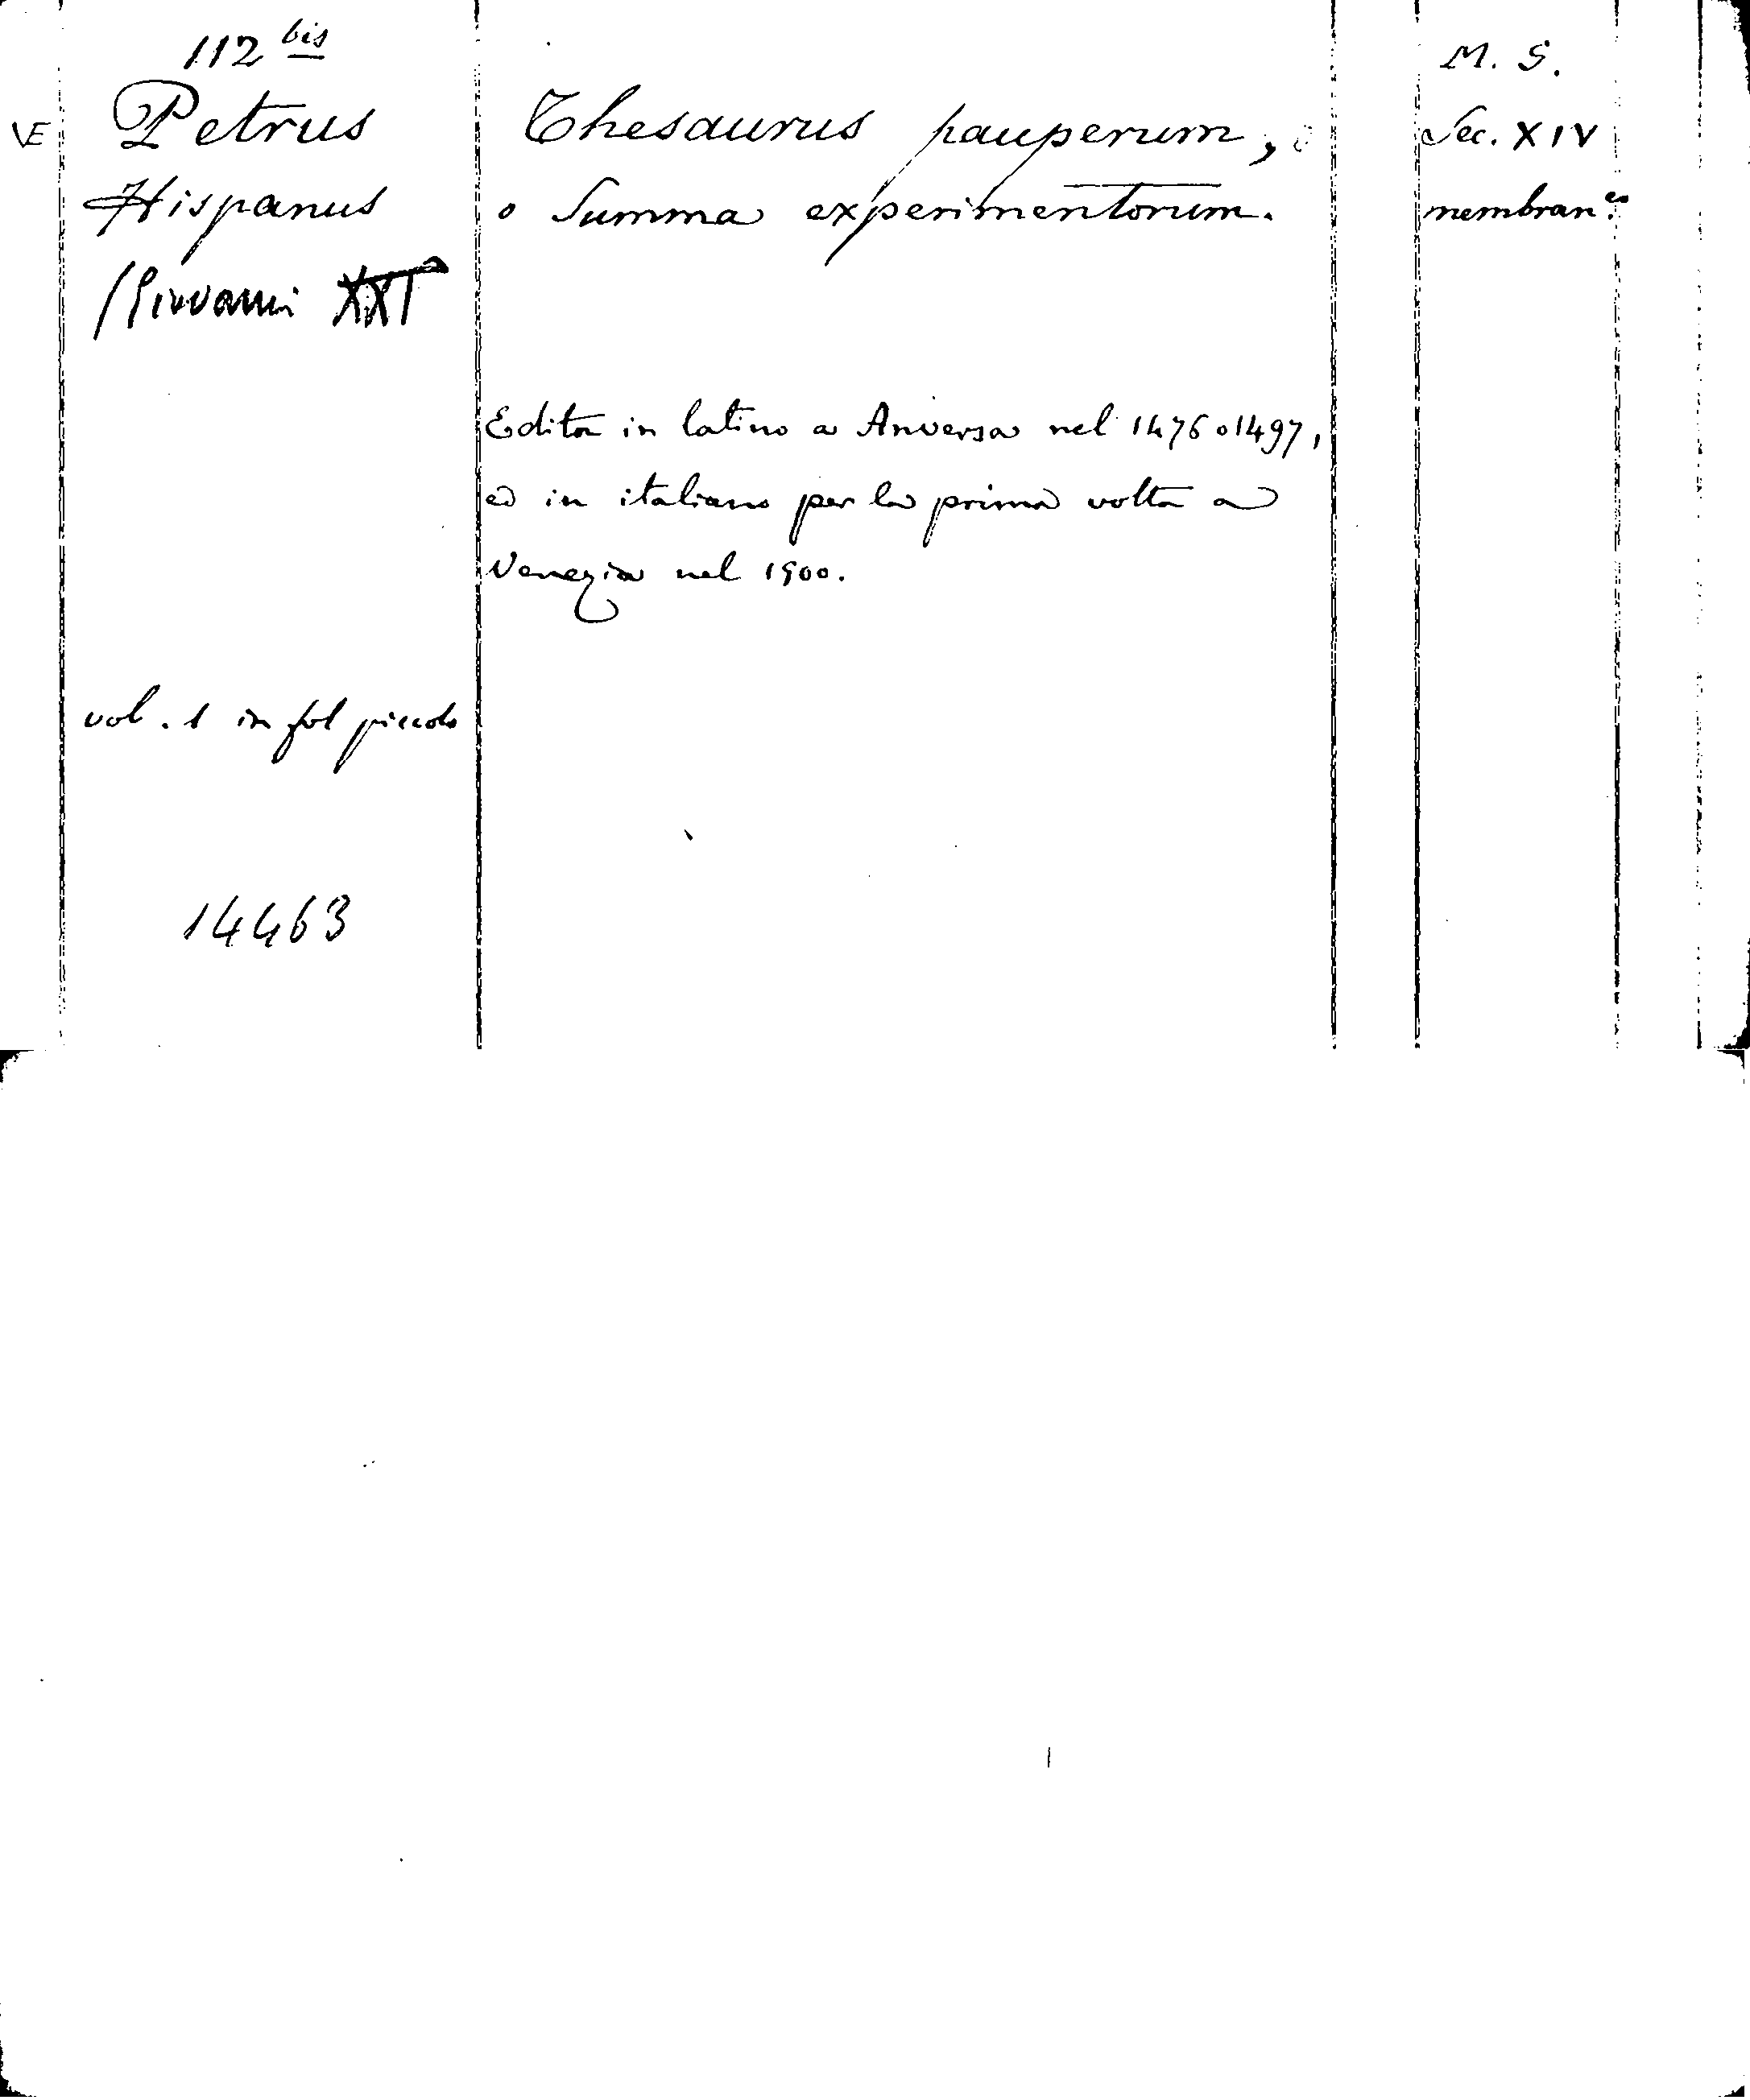 112 bis
VE
Petrus
Hispanus
(Giovanni XXI
vol. 1 in fol piccolo
14463
Thesaurus pauperum,
o Summa experimentorum.
Edito in latino a Anversa nel 1476 o 1497,
ed in italiano per la prima volta a
Venezia nel 1500.
M. S.
Sec. XIV
membran.º